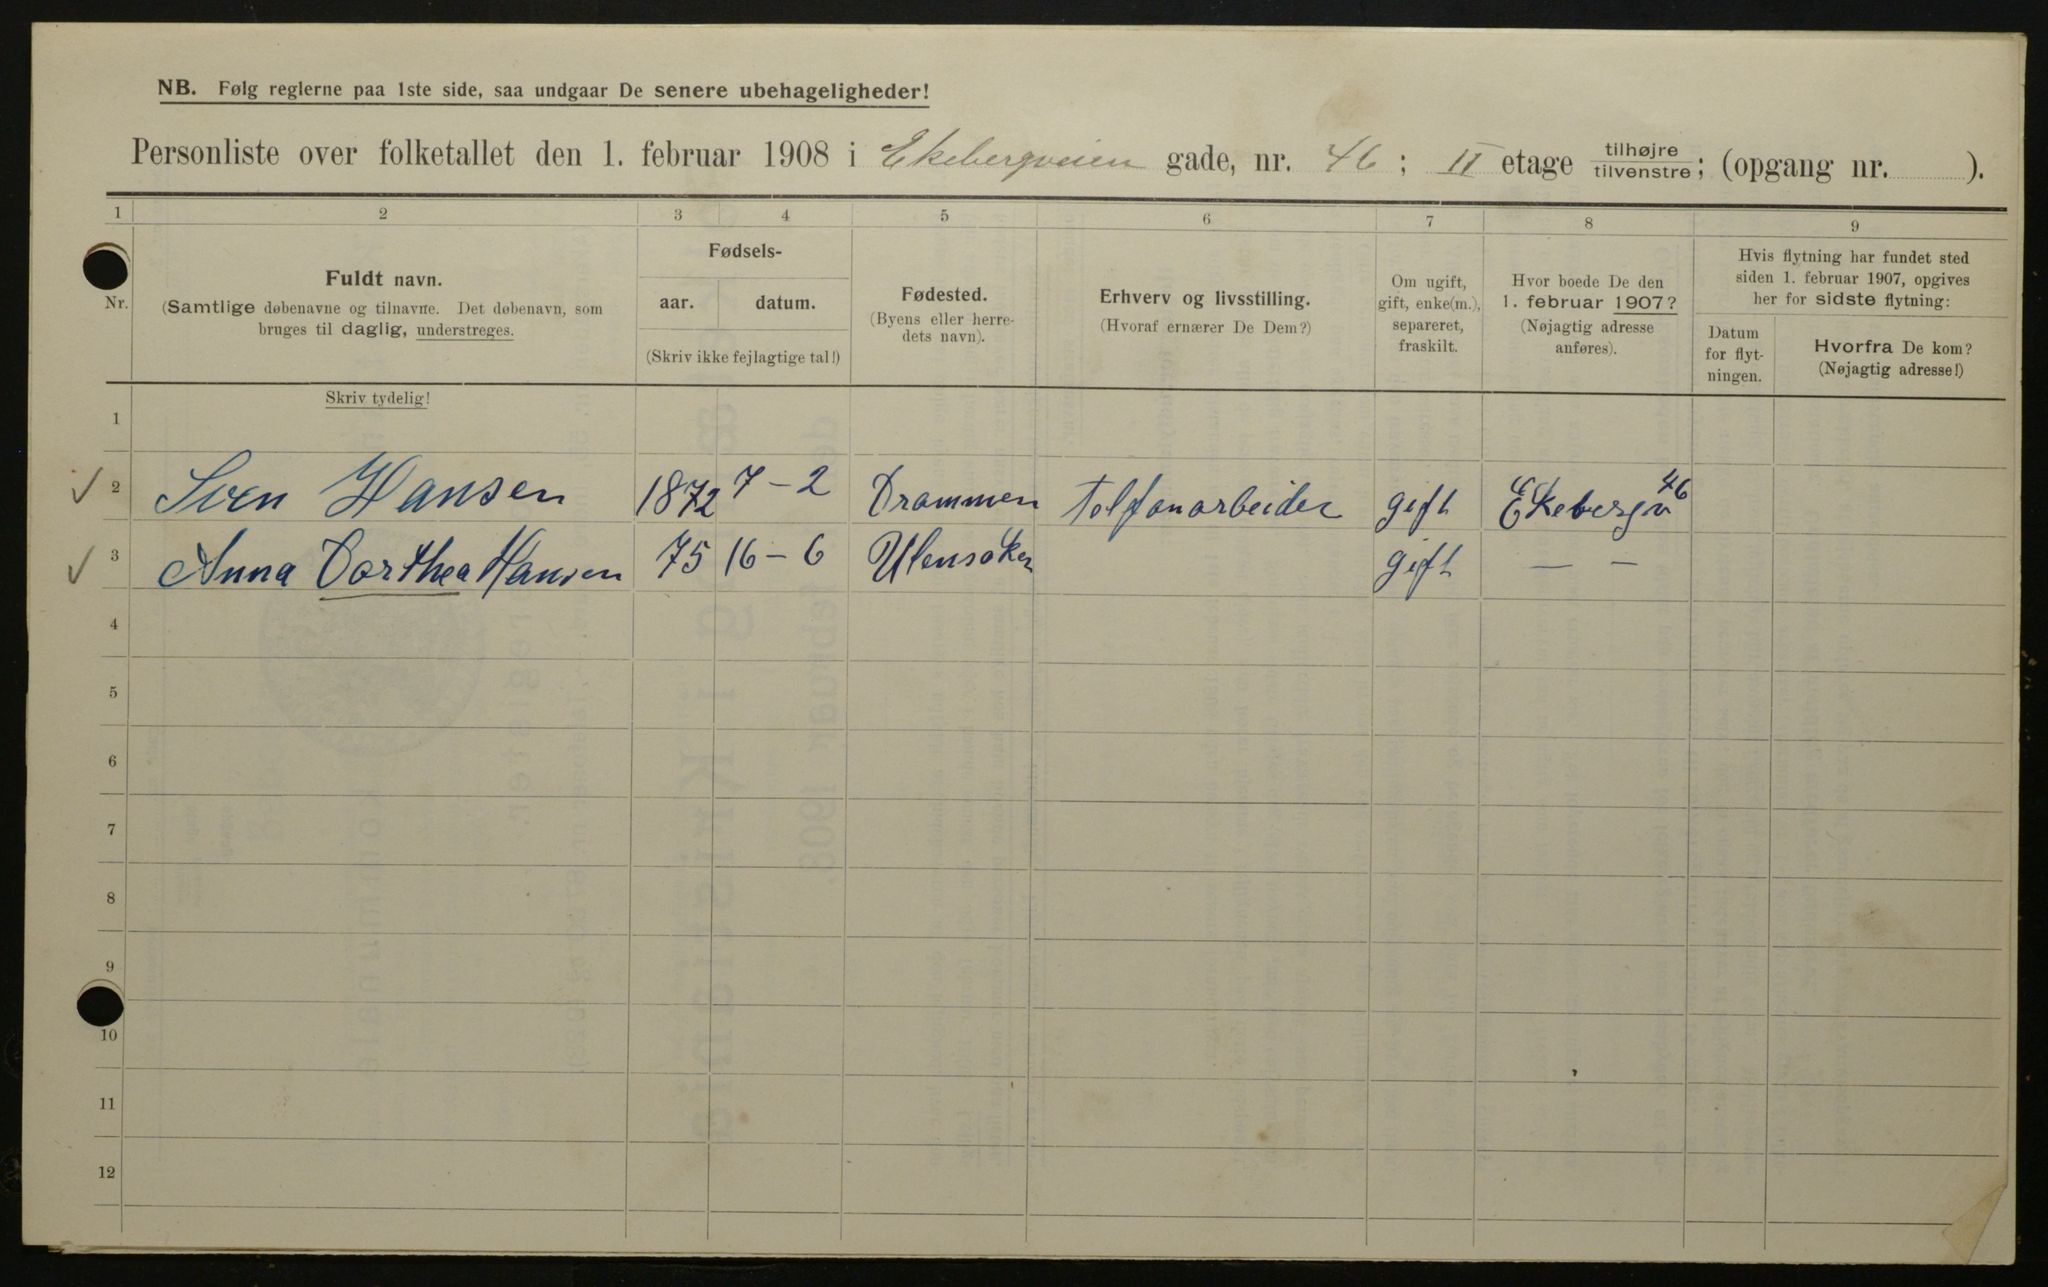 NB. Følg reglerne paa 1ste side, saa undgaar De senere ubehageligheder!
Personliste over folketallet den 1. februar 1908 i Ekebergveien gade, nr. 46; II etage tilhøjre / tilvenstre; (opgang nr. ).
1 2 3 4 5 6 7 8 9
Nr.
Fuldt navn.
(Samtlige døbenavne og tilnavne. Det døbenavn, som
bruges til daglig, understreges.
Skriv tydelig!
Fødsels-
aar. datum.
(Skriv ikke fejlagtige tal!)
Fødested.
(Byens eller herre-
dets navn).
Erhverv og livsstilling.
(Hvoraf ernærer De Dem?)
Om ugift,
gift, enke(m.),
separeret,
fraskilt.
Hvor boede De den
1. februar 1907?
(Nøjagtig adresse
anføres).
Hvis flytning har fundet sted
siden 1. februar 1907, opgives
her for sidste flytning:
Datum
for flyt-
ningen.
Hvorfra De kom?
(Nøjagtig adresse!)
1
2 Sven Hansen 1872 7-2 Drammen telfonarbeider gift Ekebergv 46
3 Anna Dorthea Hansen 75 16-6 Ulensaker gift — —
4
5
6
7
8
9
10
11
12